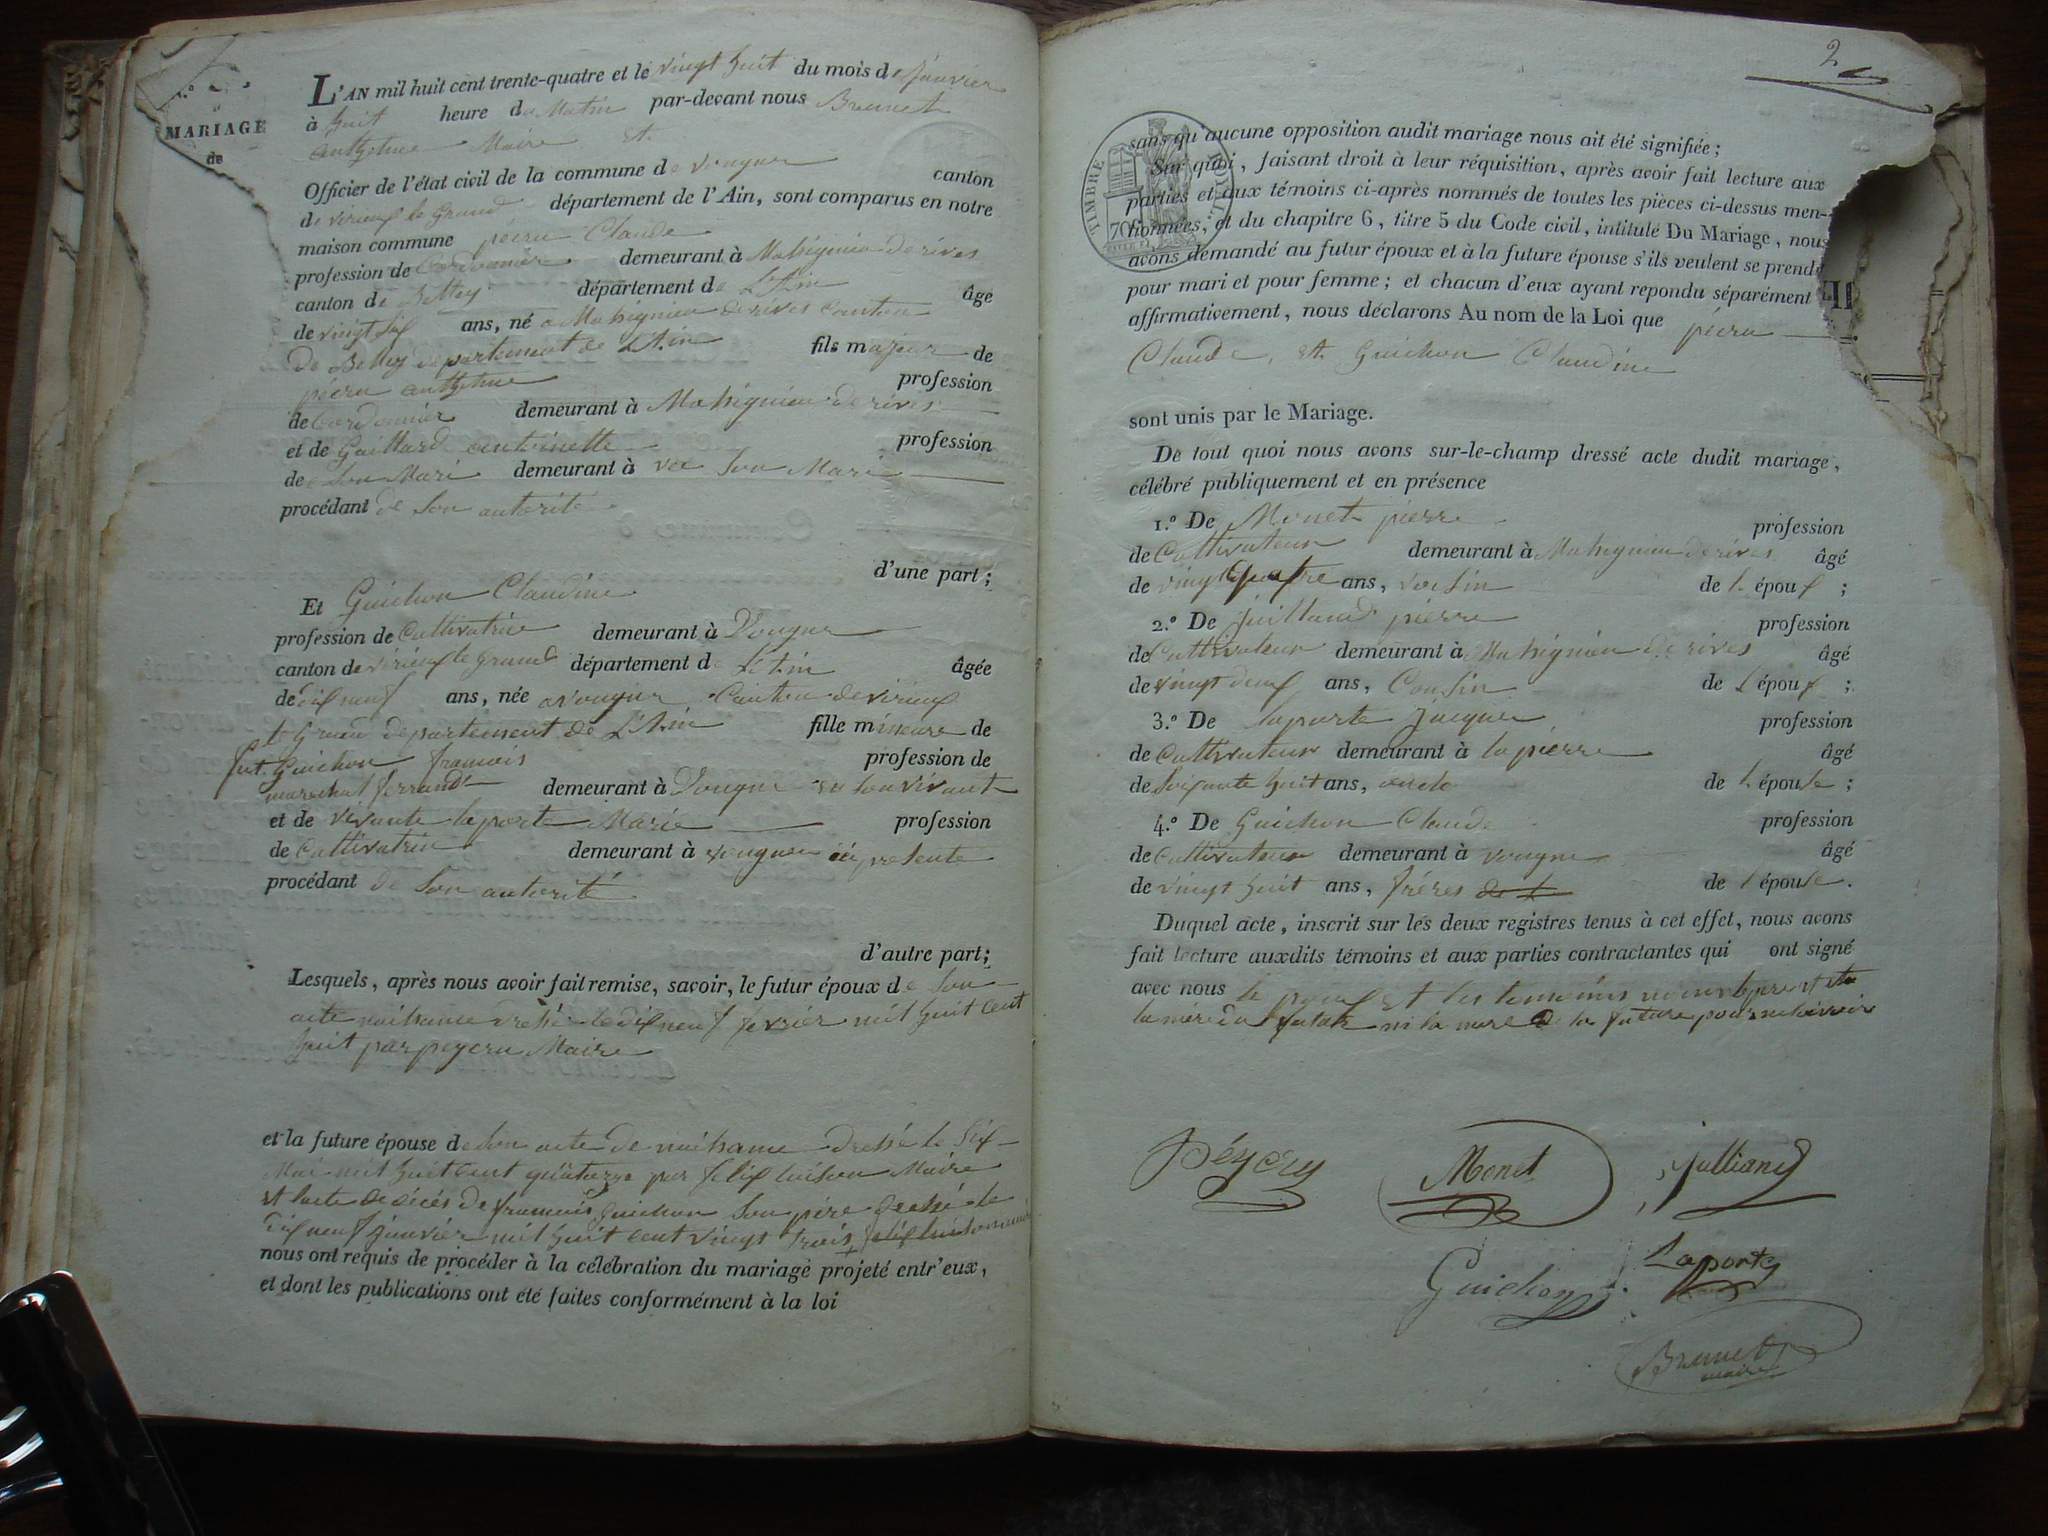 N.°
MARIAGE
de
L'AN mil huit cent trente-quatre et le vingt huit du mois de janvier
à huit heure du Matin par-devant nous Brunet
anthelme Maire et
Officier de l'état civil de la commune de vongne canton
de virieux le Grand département de l'Ain, sont comparus en notre
maison commune péeru Claude
profession de Cordonnier demeurant à Massignieu de rives
canton de Belley département de L'Ain âgé
de vingt six ans, né a Massignieu de rives canton
de Belley departement de L'Ain fils majeur de
péeru anthelme profession
de Cordonnier demeurant à Massignieu de rives
et de Gaillard antoinette profession
de Son Mari demeurant à vec Son Mari
procédant de Son autorité
d'une part;
Et Guichon Claudine
profession de Cultivatrice demeurant à Vongne
canton de virieux le grand département de L'Ain âgée
de dix neuf ans, née a vongne Canton de virieux
le Grand departement de L'Ain fille mineure de
fut Guichon francois profession de
marechal ferrand demeurant à Vongne en son vivant
et de vivante laporte Marie profession
de Cultivatrice demeurant à vongne ici presente
procédant de Son autorité
d'autre part;
Lesquels, après nous avoir fait remise, savoir, le futur époux de Son
acte naissance dressé le dix neuf fevrier mil huit cent
huit par peyeru Maire
et la future épouse de Son acte de naissance dressé le Six
Mai mil huit cent quatorze par felix Maire
et l'acte de décés de francois Guichon Son père dressé le
dix neuf janvier mil huit cent vingt trois felix
nous ont requis de procéder à la célébration du mariage projeté entr'eux,
et dont les publications ont été faites conformément à la loi
2
TIMBRE
ROYAL
70
sans qu'aucune opposition audit mariage nous ait été signifiée;
Sur quoi, faisant droit à leur réquisition, après avoir fait lecture aux
parties et aux témoins ci-après nommés de toutes les pièces ci-dessus men-
tionnées; et du chapitre 6, titre 5 du Code civil, intitulé Du Mariage, nous
avons demandé au futur époux et à la future épouse s'ils veulent se prend
pour mari et pour femme; et chacun d'eux ayant repondu séparément
affirmativement, nous déclarons Au nom de la Loi que péeru
Claude, et Guichon Claudine
sont unis par le Mariage.
De tout quoi nous avons sur-le-champ dressé acte dudit mariage,
célébré publiquement et en présence
1.° De Monet pierre profession
de Cultivateur demeurant à Massignieu de rives âgé
de vingt quatre ans, voisin de l' époux ;
2.° De juilland pierre profession
de Cultivateur demeurant à Massignieu de rives âgé
de vingt deux ans, Cousin de l'époux ;
3.° De laporte jacque profession
de Cultivateur demeurant à lapierre âgé
de Soixante huit ans, oncle de l' épouse ;
4.° De Guichon Claude profession
de Cultivateur demeurant à vongne âgé
de vingt huit ans, fréres de l' de l épouse .
Duquel acte, inscrit sur les deux registres tenus à cet effet, nous avons
fait lecture auxdits témoins et aux parties contractantes qui ont signé
avec nous le et les temoins
la mère du futur ni la mere de la future pour ne
Péyéru
Monet
Julliand
Guichon
Laporte
Brunet
maire